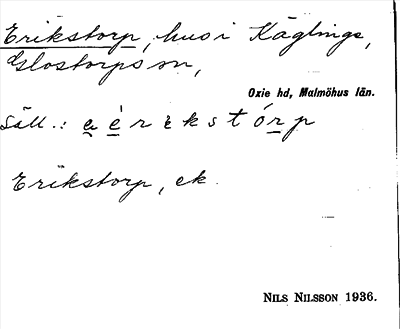 Erikstorp, hus i Käglinge,
Glostorps sn,
Oxie hd, Malmöhus län.
Säll.: a è r ı k s t ó r p
Erikstorp, ek.
NILS NILSSON 1936.